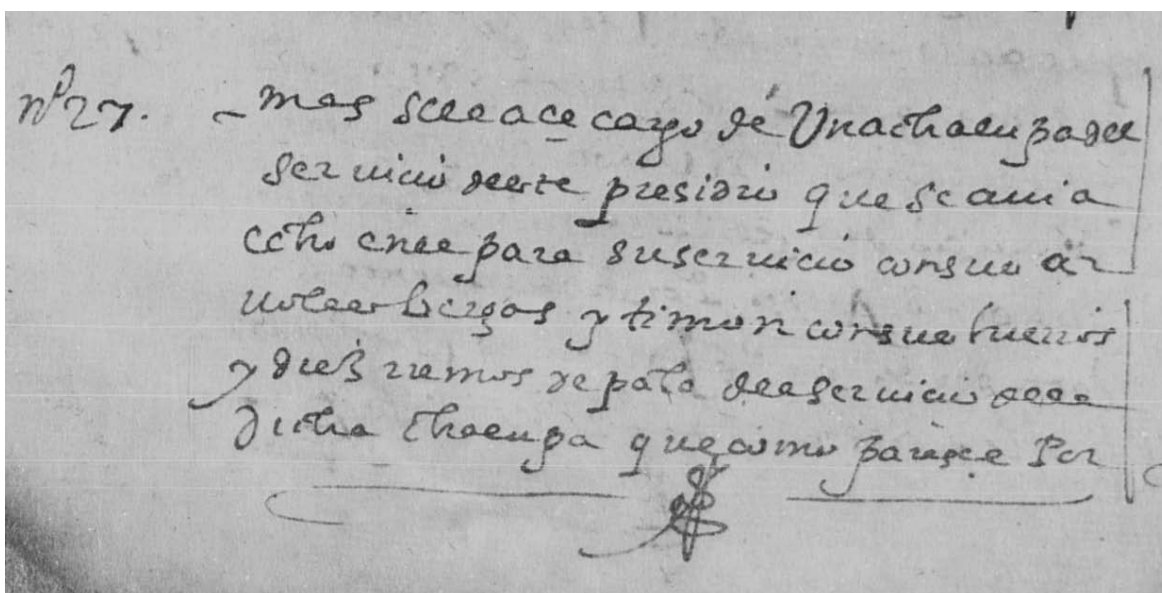 nº 27. - mas se le ace cargo de Una chalupa del
seruicio deeste presidio que se auia
echo en el para su seruicio con su ar
uoles bergas y timon con sus hierros
y diez rremos de pala del seruicio de la
dicha chalupa que como parege Por